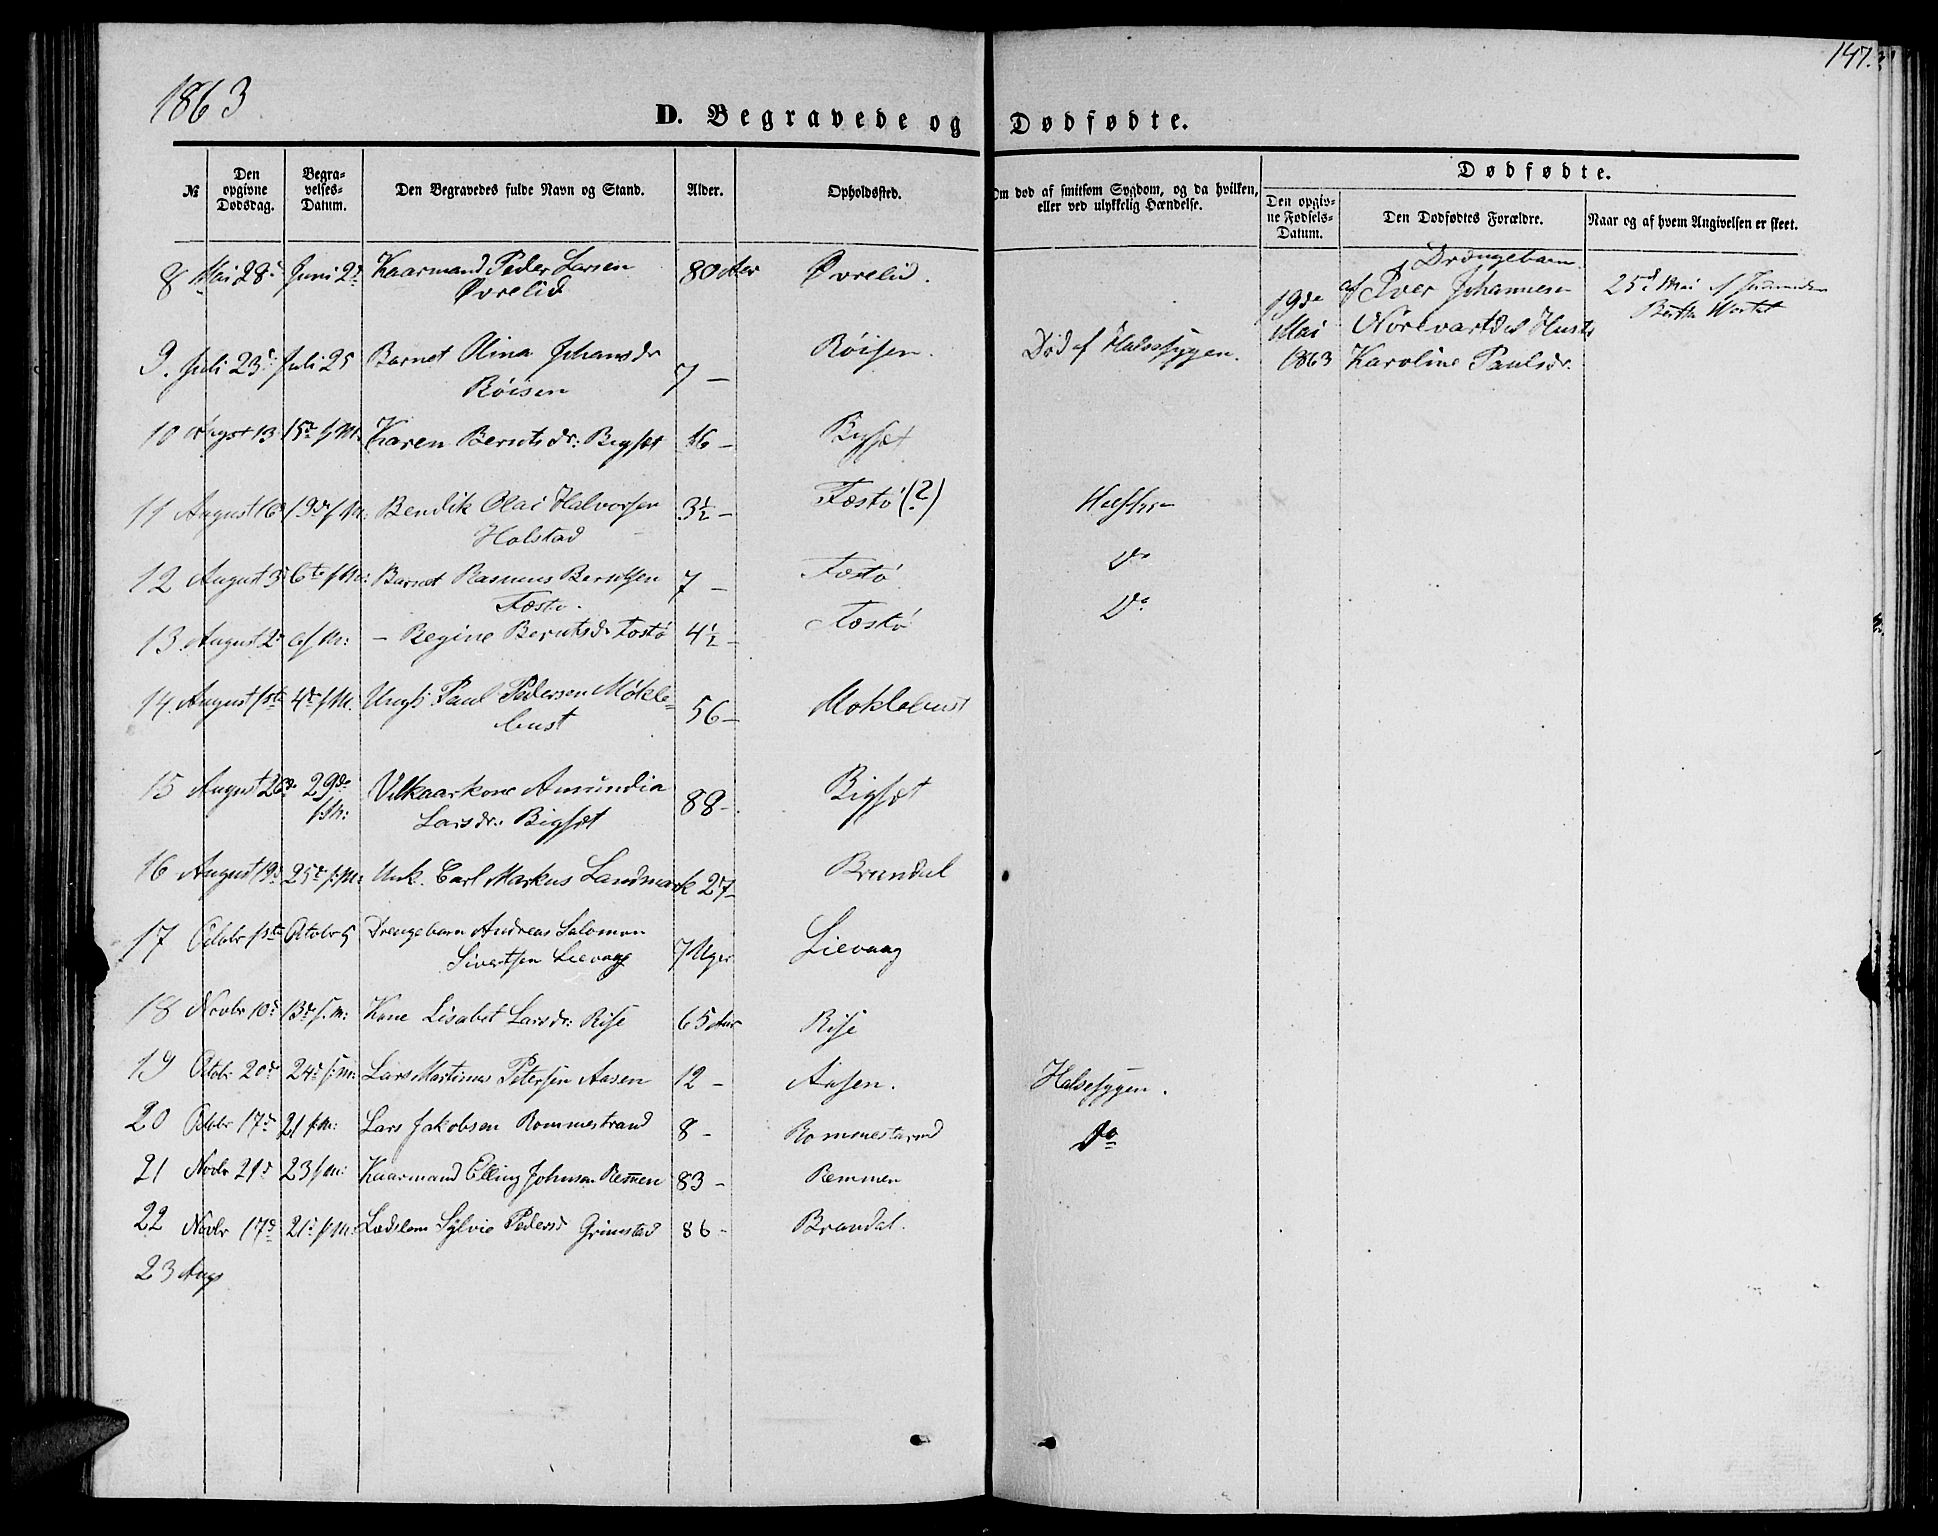 1863
147.
D. Begravede og Dødfødte.
№
Den opgivne Dødsdag.
Begravelses-Datum.
Den Begravedes fulde Navn og Stand.
Alder.
Opholdssted.
Om død af smitsom Sygdom, og da hvilken, eller ved ulykkelig Hændelse.
Dødfødte.
Den opgivne Fødsels-Datum.
Den Dødfødtes Forældre.
Naar og af hvem Angivelsen er skeet.
8 Mai 28d Juni 2d Kaarmand Peder Larsen 80 Aar Øvrelid.
Øvrelid
Drængebarn
19de af Iver Johannesen 25d Mai af
Mai Nörevartdal Hustr Berthe
1863 Karoline Paulsdr.
9. Juli 23d Juli 25 Barnet Olina Johansdr 7 – Röisen. Död af Halssygen.
Röisen
10 August 13 15de f M. Karen Berntsdr: Bigset 16 – Bigset
11 August 16 19de f M: Bendik Olai Halvorsen 3½ – Tæstö (?)
Holstad
12 August 3d 6te f M: Barnet Rasmus Berntsen 7 – Tæstö Do
Tæstö.
13 August 2d 6 f M: – Regine Berntsdr Tæstö 4½ – Tæstö Do
14. August 1ste 4de f M. Ungk: Paul Pedersen Mökle= 56 – Moklebust
bust
15 August 26de 29de Vilkaarkone Amundia 88 – Bigset
f M: Larsdr: Bigset
16 August 19d 25d f: M: Unk. Carl Markus Landmark 27 – Brandal
17 Octobr 1ste Octobr 5 Drengebarn Andreas Salomon 7 Uger Lievaag
Sivertsen Lievaag
18 Novbr 10d 13de f. M: Kone Lisabet Larsdr: Rise 65 Aar Rise
19 Octobr 20d 24d f: M: Lars Martinus Petersen Aasen 12 – Aasen. Halsesygen.
20 Octobr 17d 21 f M: Lars Jakobsen Rommestrand 8 – Rommestrand Do
21 Novbr 21d 23 f M: Kaarmand Elling Johnsen Remen 83 – Remmen
22 Novbr 17d 21d f: M: Lædslem Sylvie Pedersd Grimstad 86 – Brandal.
23 Aug